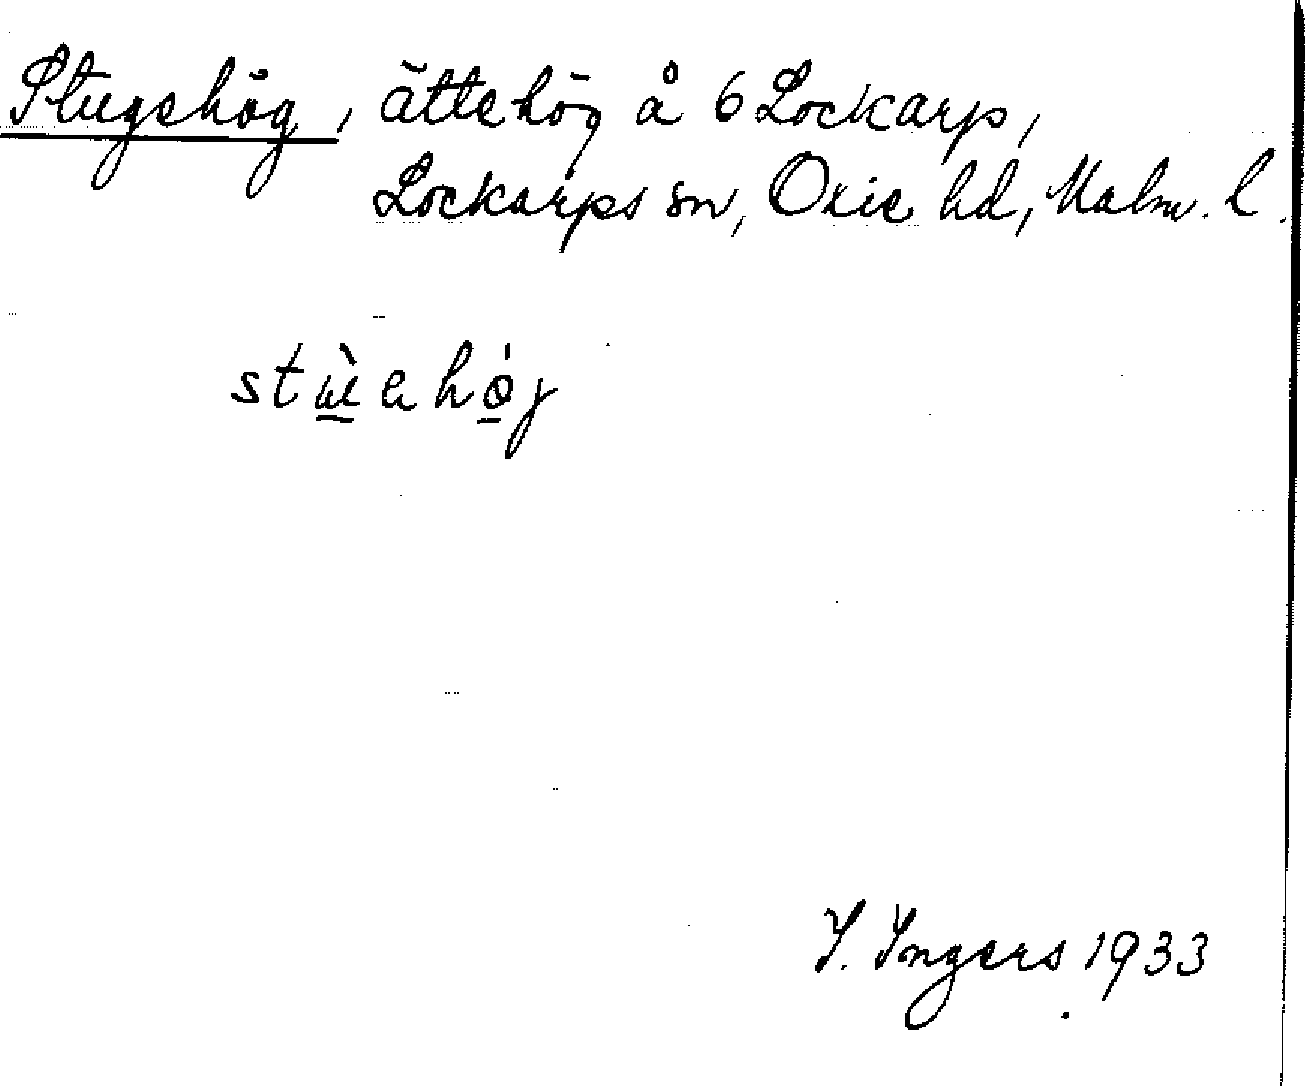 Stugehög, ättehög å 6 Lockarp,
Lockarps sn, Oxie hd, Malm. l.
I. Ingers 1933